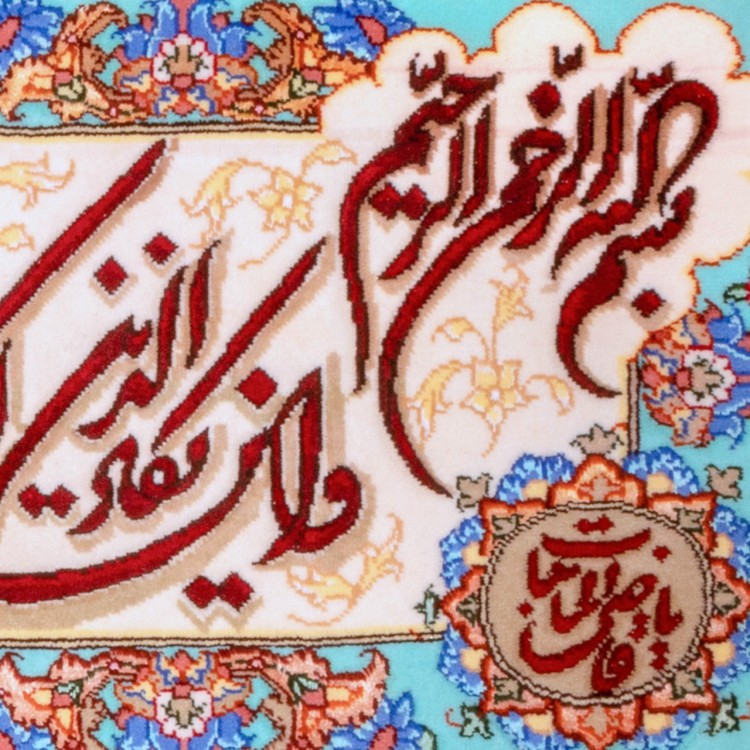 بسم الله الرحمن الرحیم
وان یکاد الذین
یا قاضی الحاجات